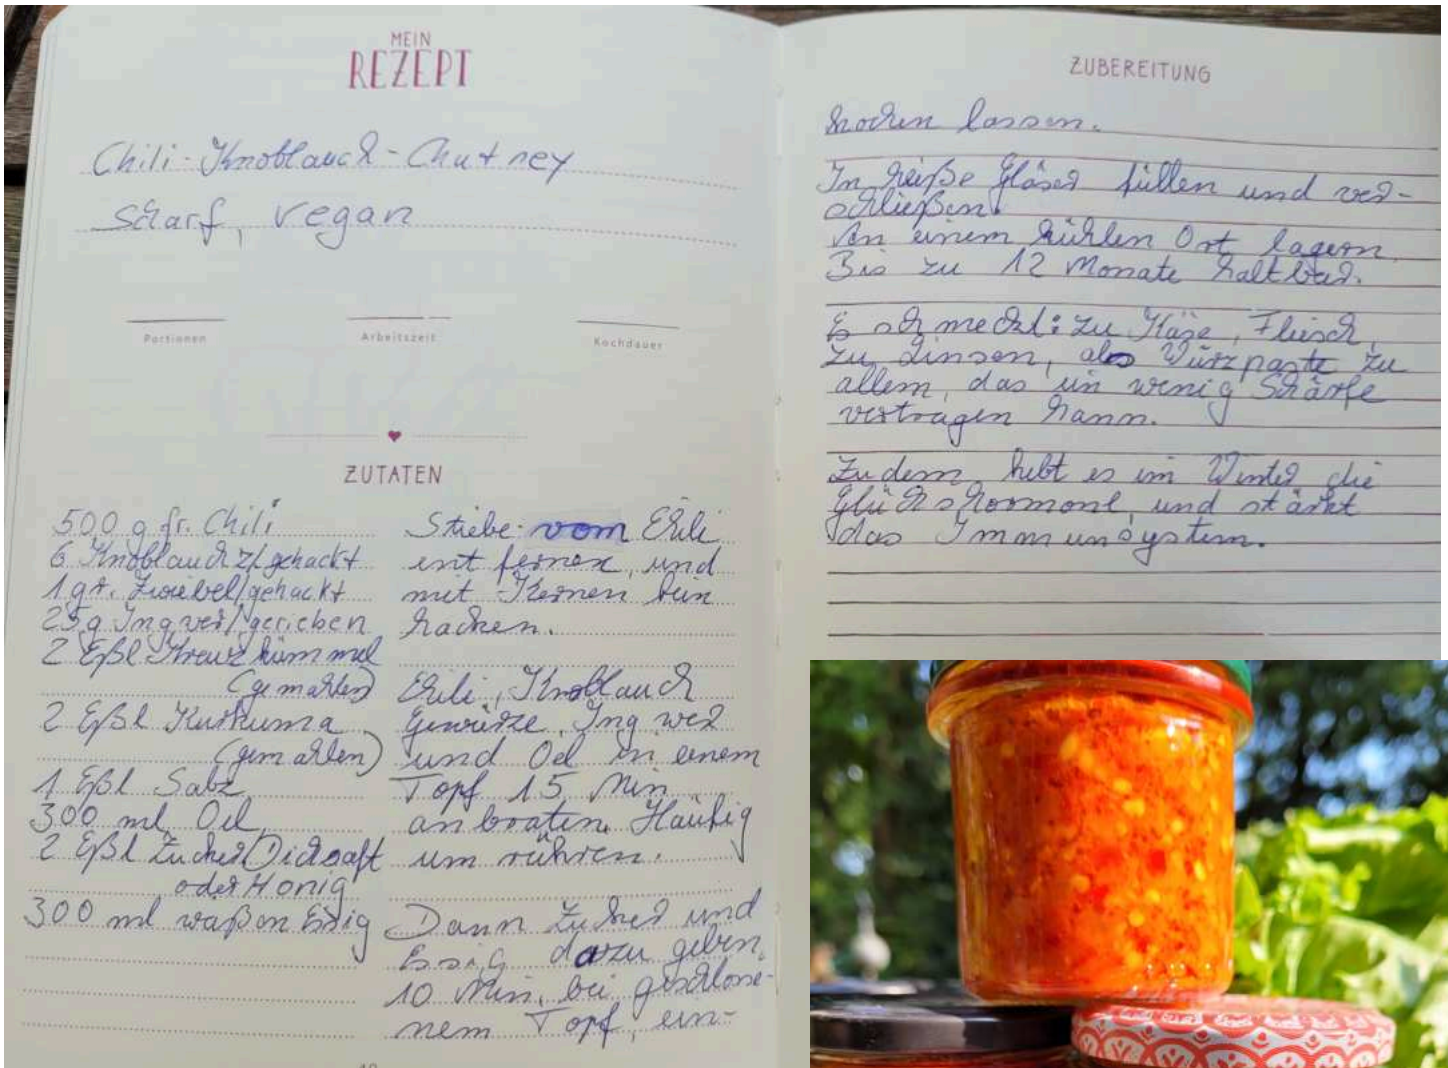 MEIN
REZEPT
Chili-Knoblauch-Chutney
scharf, vegan
Portionen
Arbeitszeit
Kochdauer
ZUTATEN
500 g fr. Chili
6 Knoblauch z/gehackt
1 gr. Zwiebel/gehackt
25 g Ingwer/gerieben
2 Eßl Kreuzkümmel
(gemahlen)
2 Eßl Kurkuma
(gemahlen)
1 Eßl Salz
300 ml Oel
2 Eßl Zucker(Dicksaft
oder Honig
300 ml waßen Essig
Stiebe vom Chili
entfernen, und
mit Kernen fein
hacken.
Chili, Knoblauch
Gewürze, Ingwer
und Oel in einem
Topf 15 Min
anbraten. Häufig
um rühren.
Dann Zucker und
Essig dazu geben,
10 Min. bei geschlosse-
nem Topf, ein-
ZUBEREITUNG
kochen lassen.
In heiße Gläser füllen und ver-
schließen.
An einem kühlen Ort lagern.
Bis zu 12 Monate haltbar.
Es schmeckt: zu Käse, Fleisch,
zu Linsen, als Würzpaste zu
allem, das ein wenig Schärfe
vertragen kann.
Zudem hebt es im Winter die
Glückshormone, und stärkt
das Immunsystem.